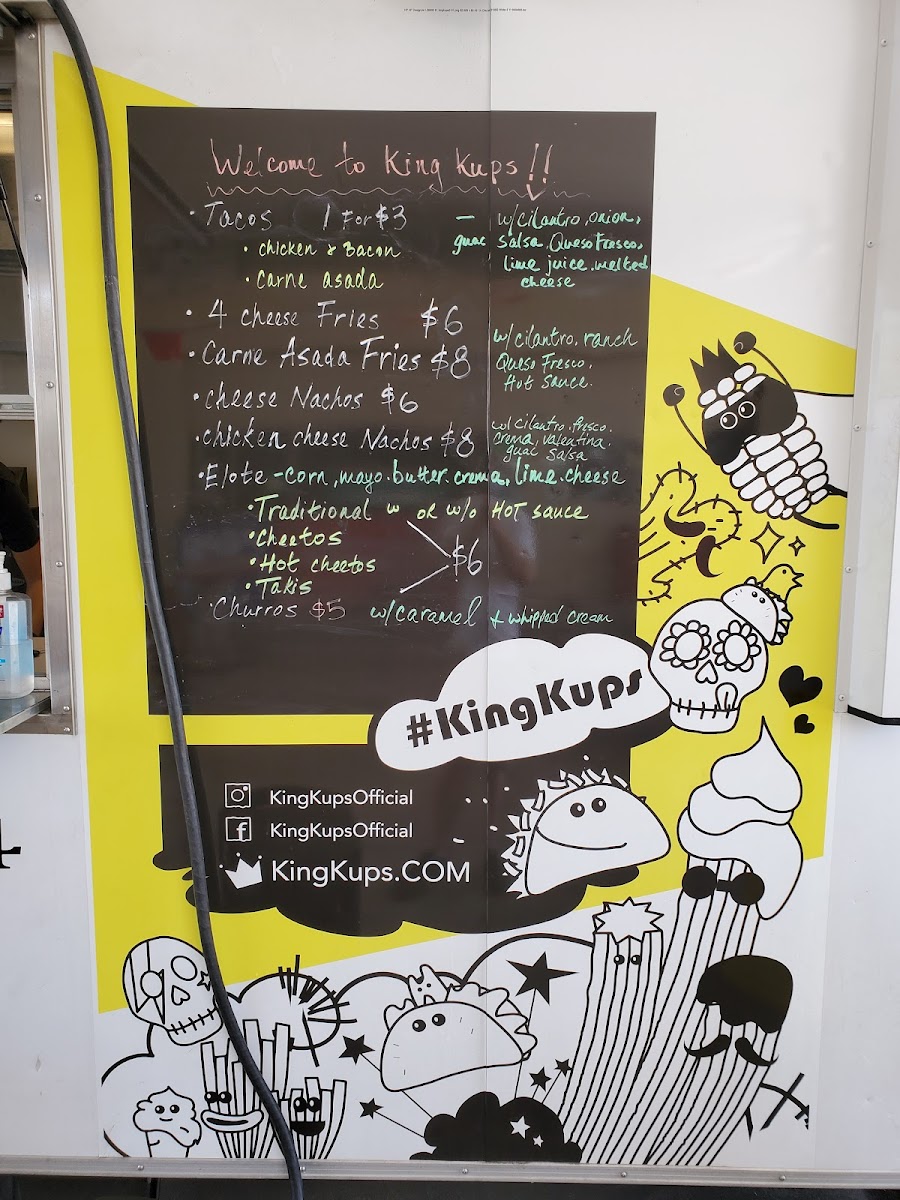 Welcome to King Kups!!
• Tacos 1 For $3 — w/cilantro, onion,
guac salsa, Queso Fresco,
• chicken & Bacon
lime juice, melted
• Carne asada
cheese
• 4 cheese Fries $6
w/cilantro, ranch
• Carne Asada Fries $8
Queso Fresco,
Hot Sauce.
• cheese Nachos $6
w/cilantro, fresco
• chicken cheese Nachos $8
crema, valentina,
guac salsa
• Elote - corn, mayo. butter. crema, lime. cheese
• Traditional w or w/o HOT sauce
• Cheetos
• Hot cheetos
$6
• Takis
Churros $5 w/caramel & whipped cream
#KingKups
KingKupsOfficial
f KingKupsOfficial
KingKups.COM